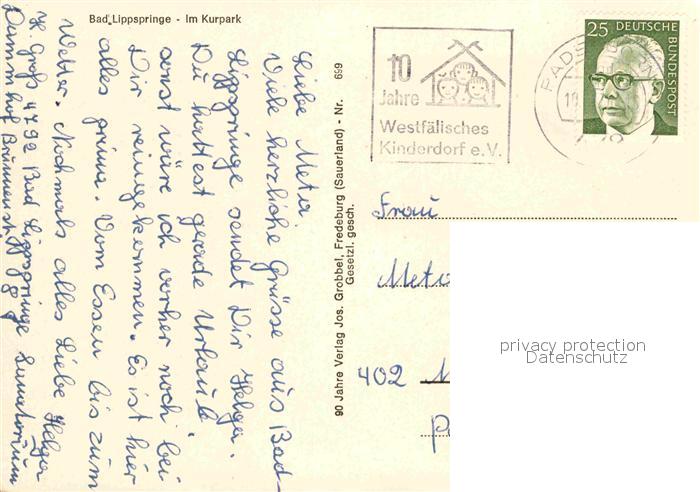 Bad Lippspringe - Im Kurpark
Liebe Meta!
Viele herzliche Grüsse aus Bad-
Lippspringe sendet Dir Helga.
Du hattest gerade Urlaub
sonst wäre ich vorher noch bei
Dir reingekommen. Es ist hier
alles prima. Vom Essen bis zum
Wetter. Nochmals alles Liebe Helga
H. Groß 4792 Bad Lippspringe Sanatorium
Brunnenstr. 8
90 Jahre Verlag Jos. Grobbel, Fredeburg (Sauerland) - Nr. 699
Gesetzl. gesch.
10
Jahre
Westfälisches
Kinderdorf e.V.
25 DEUTSCHE
BUNDESPOST
PADE
Frau
Meta
402 M
privacy protection
Datenschutz